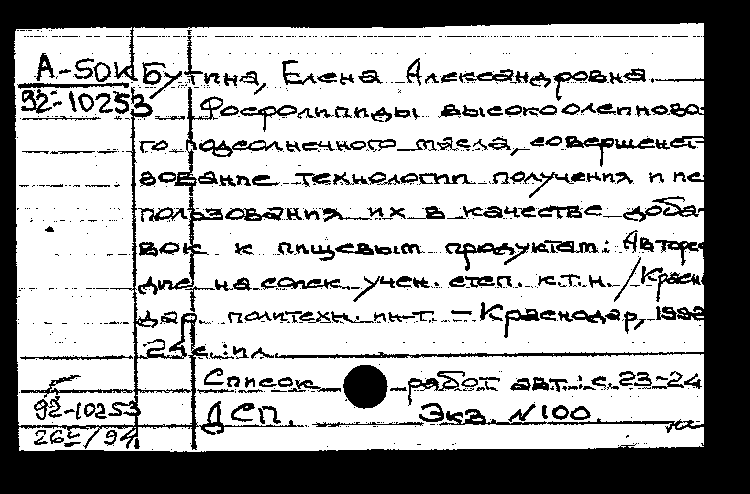 А-50К Бутина, Елена Александровна.
92-10253 Фосфолипиды высокоолеиново-
го подсолнечного масла, совершенст-
вование технологии получения и ис-
пользования их в качестве доба-
вок к пищевым продуктам: Авторе
дис на соиск. учен. степ. к.т.н. / Красн
дар. политехн. ин-т. — Краснодар, 1992
24 с.: ил.
Список работ авт.: с. 23-24
92-10253 ДСП. Экз. N100.
265/94